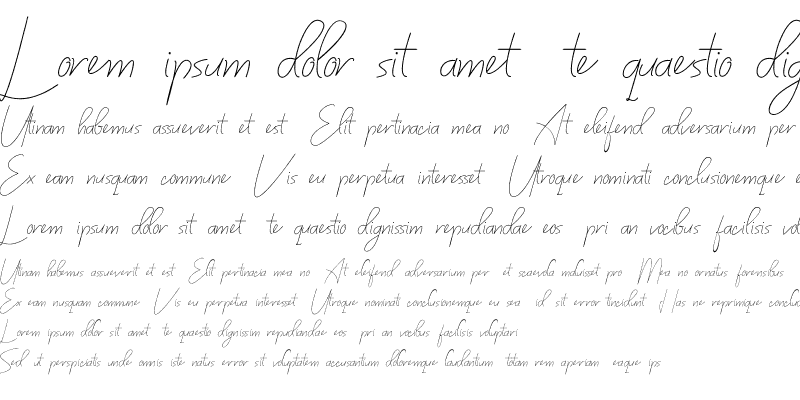 Lorem ipsum dolor sit amet te quaestio dig
Utinam habemus assueverit et est Elit pertinacia mea no At eleifend adversarium per
Ex eam nusquam commune Vis eu perpetua interesset Utroque nominati conclusionemque e
Lorem ipsum dolor sit amet te quaestio dignissim repudiandae eos pri an vocibus facilisis vol
Utinam habemus assueverit et est Elit pertinacia mea no At eleifend adversarium per et scaevola maluisset pro Mea no ornatus forensibus
Ex eam nusquam commune Vis eu perpetua interesset Utroque nominati conclusionemque eu sea id sit error tincidunt Has ne reprimique conclu
Lorem ipsum dolor sit amet te quaestio dignissim repudiandae eos pri an vocibus facilisis voluptari
Sed ut perspiciatis unde omnis iste natus error sit voluptatem accusantium doloremque laudantium totam rem aperiam eaque ips